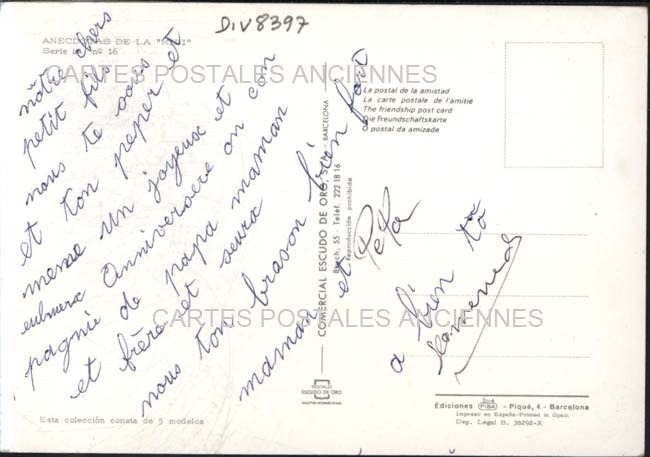 DIV8397
ANECDOTAS DE LA "MILI"
Serie nº 16
CARTES POSTALES ANCIENNES
nôtre chers
petit fils
nous te soues
et ton peper et
meme un joyeux et con
Anniversere on com
pagnie de papa maman
et frère et seura
nous ton brason bien fort
maman et PePa
a bien tô
La postal de la amistad
La carte postale de l'amitié
The friendship post card
Die Freundschaftskarte
O postal da amizade
COMERCIAL ESCUDO DE ORO, S. A. - BARCELONA
Bosch, 55 - Teléf. 222 18 16
Reproducción prohibida
CARTES POSTALES ANCIENNES
POSTALES
ESCUDO DE ORO
Ediciones FISA - Piqué, 4 - Barcelona
Impreso en España-Printed in Spain
Dep. Legal B. 36292-X
Esta colección consta de 5 modelos